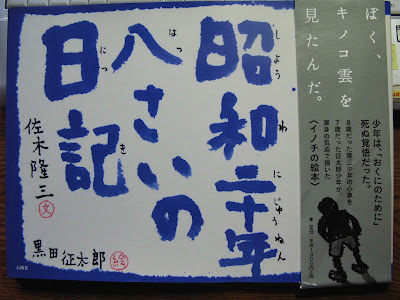 ぼく、
キノコ雲を
見たんだ。
少年は、「おくにのために」
死ぬ覚悟だった。
8歳だった隆三少年の心象を
7歳だった征太郎少年が、
渾身の気迫で描いた
〈イノチの絵本〉
昭和二十年
しょう わ にじゅうねん
八さいの
はっ
日記
にっ き
佐木隆三 文
黒田征太郎 絵
石風社